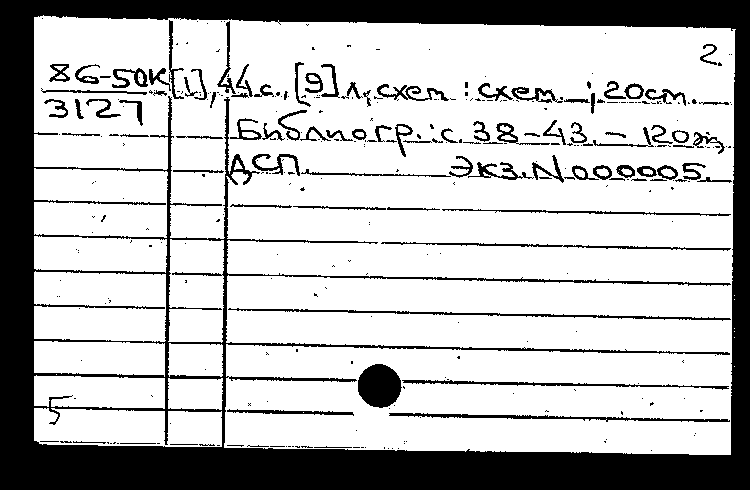 2.
86-50К [1], 44 с., [9] л, схем : схем. ; 20см.
3127
Библиогр.: с. 38-43. - 120экз,
ДСП. Экз. N 000005.
5